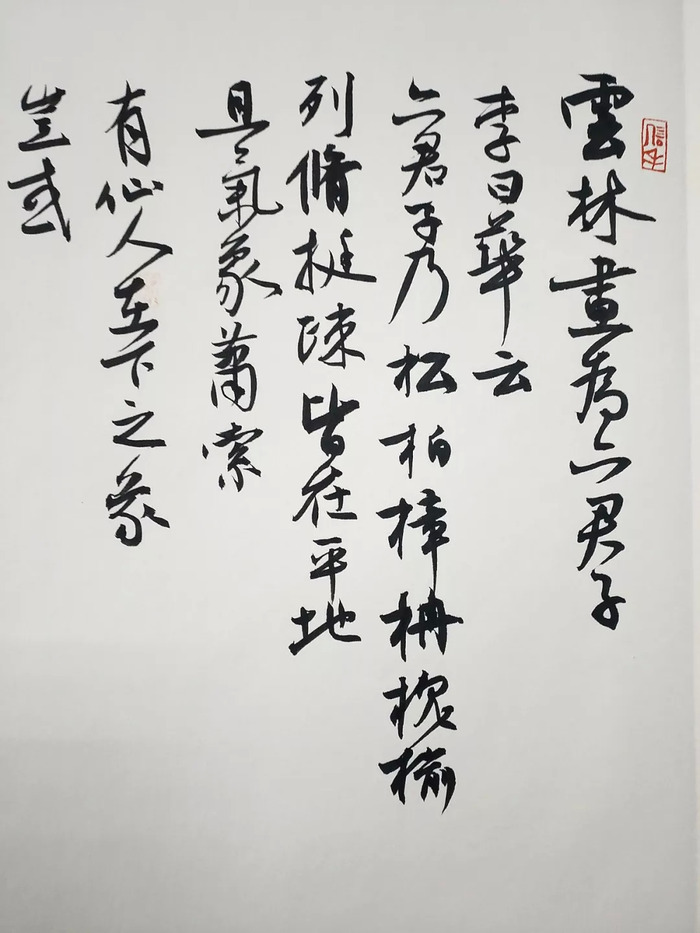 雲林畫為六君子
李日華云
六君子乃松柏樟柟槐榆
列脩挺疎皆在平地
且氣象蕭索
有仙人在下之象
豈或
信手